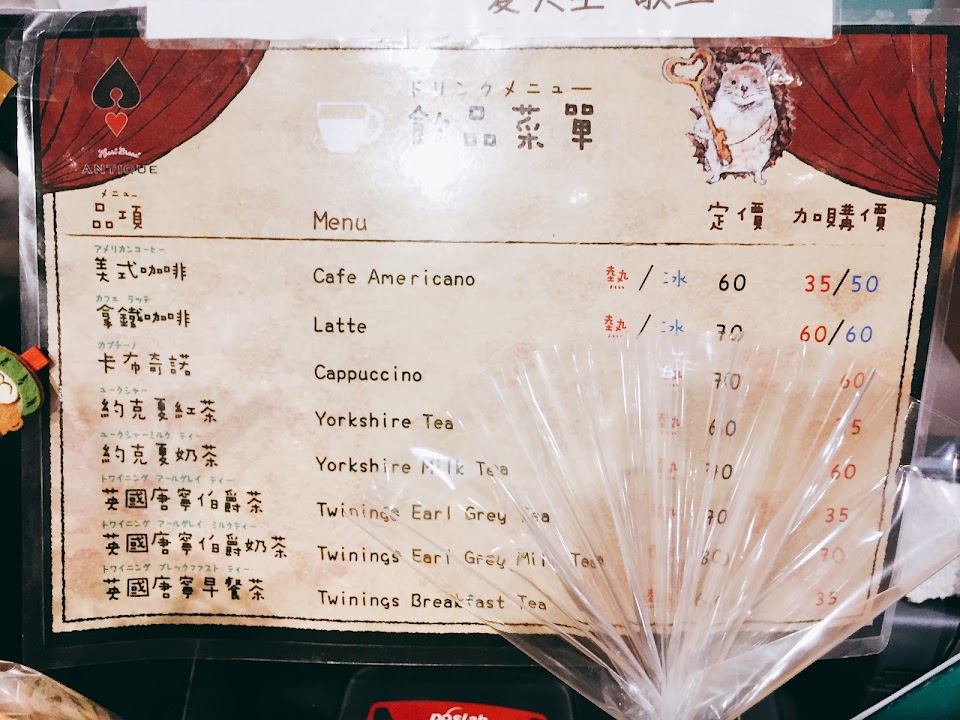 ANTIQUE
ドリンクメニュー
飲品菜單
メニュー
品項 Menu 定價 加購價
アメリカンコーヒー
美式咖啡 Cafe Americano 熱/冰 60 35/50
カフェ ラッテ
拿鐵咖啡 Latte 熱/冰 70 60/60
カプチーノ
卡布奇諾 Cappuccino 熱 70 60
ヨークシャー
約克夏紅茶 Yorkshire Tea 熱 60 35
ヨークシャーミルク ティー
約克夏奶茶 Yorkshire Milk Tea 70 60
トワイニング アールグレイ ティー
英國唐寧伯爵茶 Twinings Earl Grey Tea 70 35
トワイニング アールグレイ ミルクティー
英國唐寧伯爵奶茶 Twinings Earl Grey Milk Tea 80 70
トワイニング ブレックファスト ティー
英國唐寧早餐茶 Twinings Breakfast Tea 35
poslab